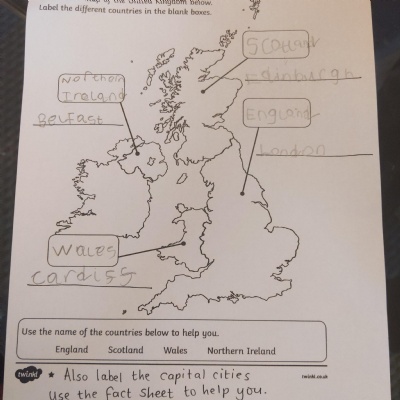 map of the United Kingdom below.
Label the different countries in the blank boxes.
Scotland
Edinburgh
Northern
Ireland
Belfast
England
London
Wales
Cardiss
Use the name of the countries below to help you.
England Scotland Wales Northern Ireland
twinkl
twinkl.co.uk
* Also label the capital cities
Use the fact sheet to help you.